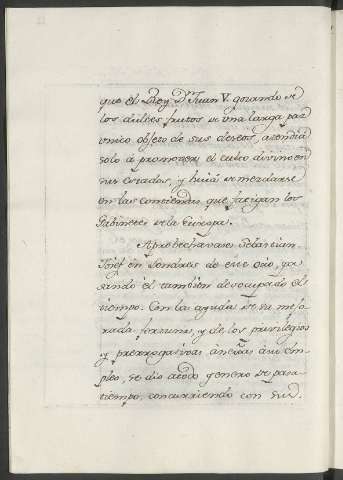 que el Rey Dn Juan V. gozando de
los dulces frutos de una larga paz
unico objeto de sus deseos, atendia
solo à promover el culto divino en
sus estados, y huia de mezclarse
en las contiendas que fatigan los
Gabinetes de la Europa.
Aprobechavase Sebastian
Josef en Londres de este ocio, pa
sando el tambien desocupado el
tiempo. Con la ayuda de su mejo
rada fortuna, y de los privilegios
y prerrogativas anexas à su em
pleo, se dio à todo genero de pasa
tiempo, concurriendo con sus